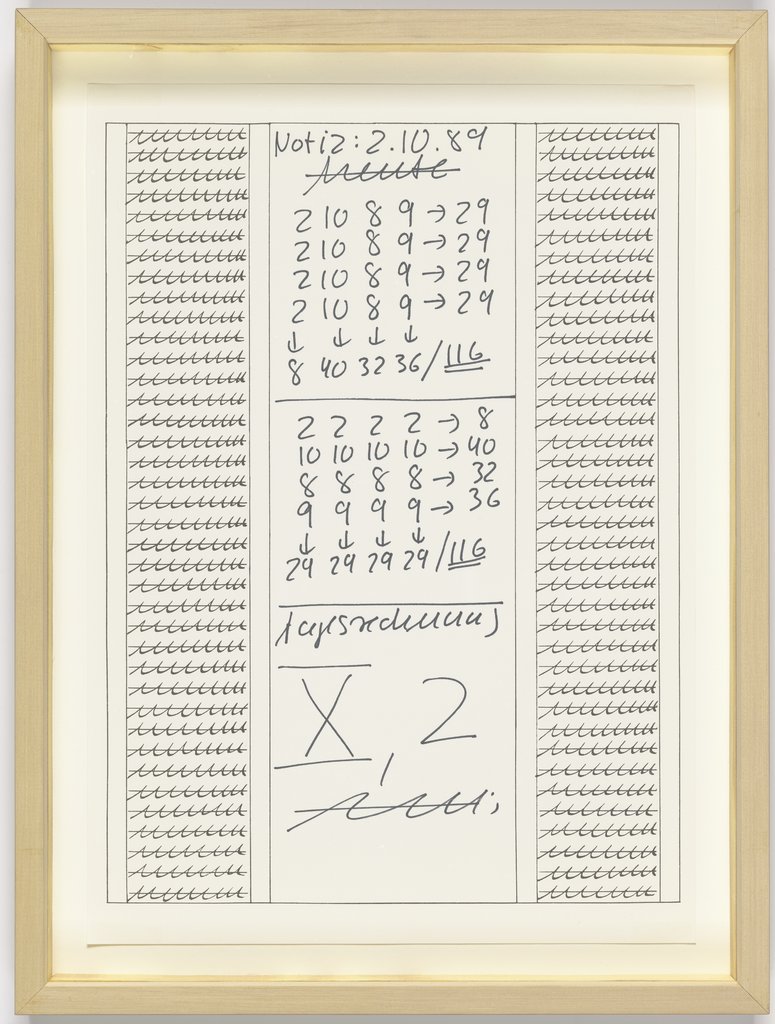 Notiz: 2.10.89
heute
2 10 8 9 → 29
2 10 8 9 → 29
2 10 8 9 → 29
2 10 8 9 → 29
↓ ↓ ↓ ↓
8 40 32 36 / 116
2 2 2 2 → 8
10 10 10 10 → 40
8 8 8 8 → 32
9 9 9 9 → 36
↓ ↓ ↓ ↓
29 29 29 29 / 116
Tagesrechnung
X, 2